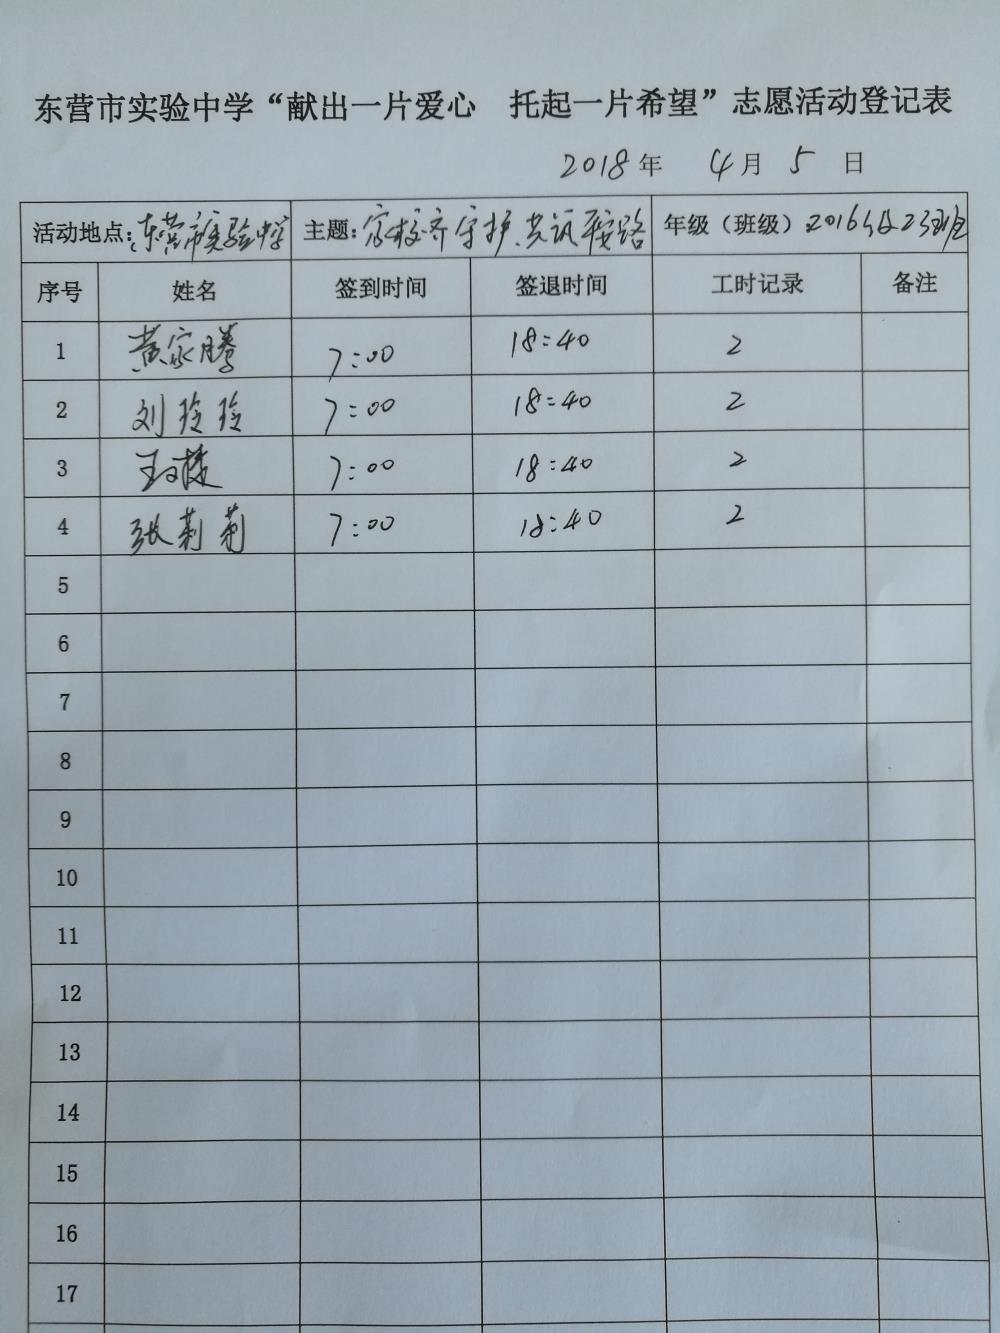 东营市实验中学“献出一片爱心 托起一片希望”志愿活动登记表
2018年 4月 5 日
活动地点:东营市实验中学 主题:家校齐守护 共筑平安路 年级（班级）2016级2班
序号 姓名 签到时间 签退时间 工时记录 备注
1 黄家腾 7:00 18:40 2
2 刘玲玲 7:00 18:40 2
3 7:00 18:40 2
4 张莉莉 7:00 18:40 2
5
6
7
8
9
10
11
12
13
14
15
16
17